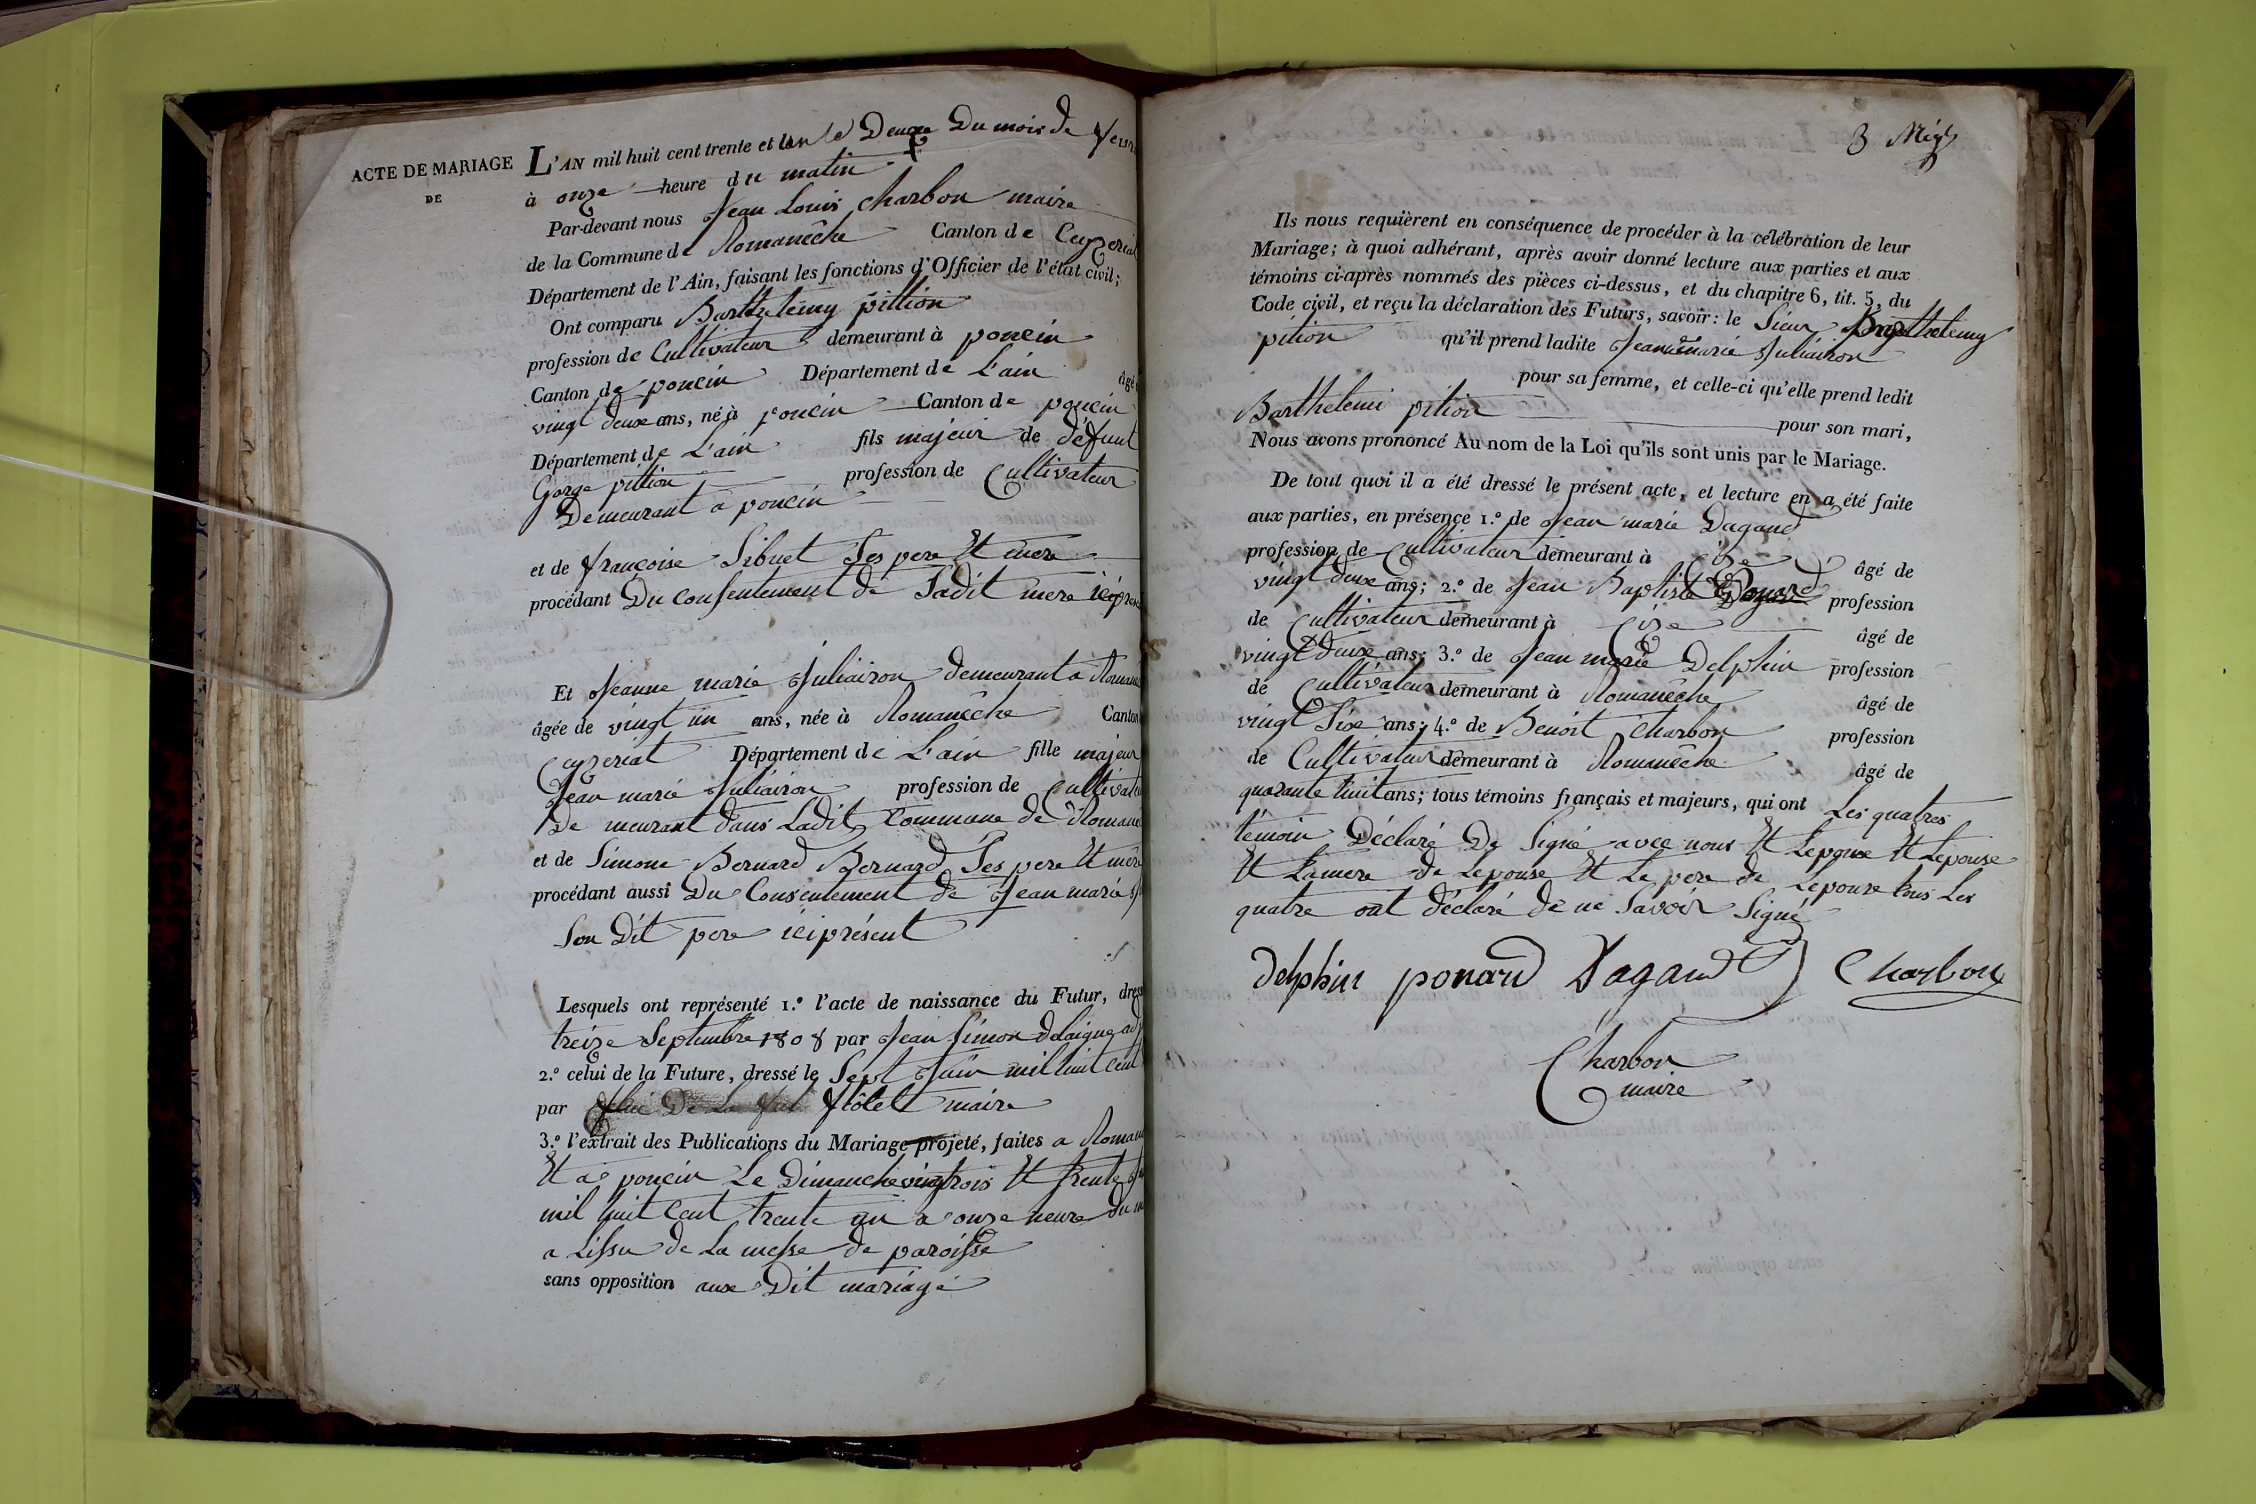 ACTE DE MARIAGE
DE
L'AN mil huit cent trente et un le Deuxe Du mois de fevri
à onze heure du matin
Par-devant nous Jean Louis Charbon maire
de la Commune de Romanêche Canton de Ceyzeriat
Département de l'Ain, faisant les fonctions d'Officier de l'état civil;
Ont comparu Barthelemy pittion
profession de Cultivateur demeurant à poncin
Canton de poncin Département de L'ain âgé
vingt deux ans, né à poncin Canton de poncin
Département de L'ain fils majeur de défunt
Gorge pittion profession de Cultivateur
Demeurant a poncin
et de françoise Sibuet Ses pere Et mere
procédant Du consentement de Sadit mere ici pres
Et Jeanne marie Juliairon demeurant a Romane
âgée de vingt un ans, née à Romanêche Canton
Ceyzeriat Département de L'ain fille majeur
Jean marie Juliairon profession de Cultivate
De meurant dans Ladit Commune de Romane
et de Simone Bernard Bernard Ses pere Et mere
procédant aussi Du Consentement de Jean marie
Son Dit pere ici présent
Lesquels ont représenté 1.º l'acte de naissance du Futur, dres
treize Septembre 1808 par Jean Simon delaigue adj
2.º celui de la Future, dressé le Sept Juin mil huit cent
par flôlet maire
3.º l'extrait des Publications du Mariage projeté, faites a Roman
Et a poncin Le Dimanche vingtrois Et trente
mil huit Cent trente un a onze heure du m
a Lissu de La messe de paroisse
sans opposition aux Dit mariage
3
Ils nous requièrent en conséquence de procéder à la célébration de leur
Mariage; à quoi adhérant, après avoir donné lecture aux parties et aux
témoins ci-après nommés des pièces ci-dessus, et du chapitre 6, tit. 5, du
Code civil, et reçu la déclaration des Futurs, savoir: le Sieur Barthelemy
pition qu'il prend ladite Jeanne marie Juliairon
pour sa femme, et celle-ci qu'elle prend ledit
Barthelemi pition pour son mari,
Nous avons prononcé Au nom de la Loi qu'ils sont unis par le Mariage.
De tout quoi il a été dressé le présent acte, et lecture en a été faite
aux parties, en présence 1.º de Jean marie Dagand
profession de Cultivateur demeurant à Cize âgé de
vingt deux ans; 2.º de Jean Baptiste Ponard profession
de Cultivateur demeurant à Cize âgé de
vingt deux ans; 3.º de Jean marie Delphin profession
de Cultivateur demeurant à Romanêche âgé de
vingt Six ans; 4.º de Benoit Charbon profession
de Cultivateur demeurant à Romanêche âgé de
quarante huit ans; tous témoins français et majeurs, qui ont Les quatres
témoin Déclaré De Signé avec nous Et Lepoux Et Lepouse
Et La mere de Lepouse Et Le pere de Lepouse tous Les
quatre ont déclaré de ne Savoir Signé
delphin ponard Dagand Charbon
Charbon
maire